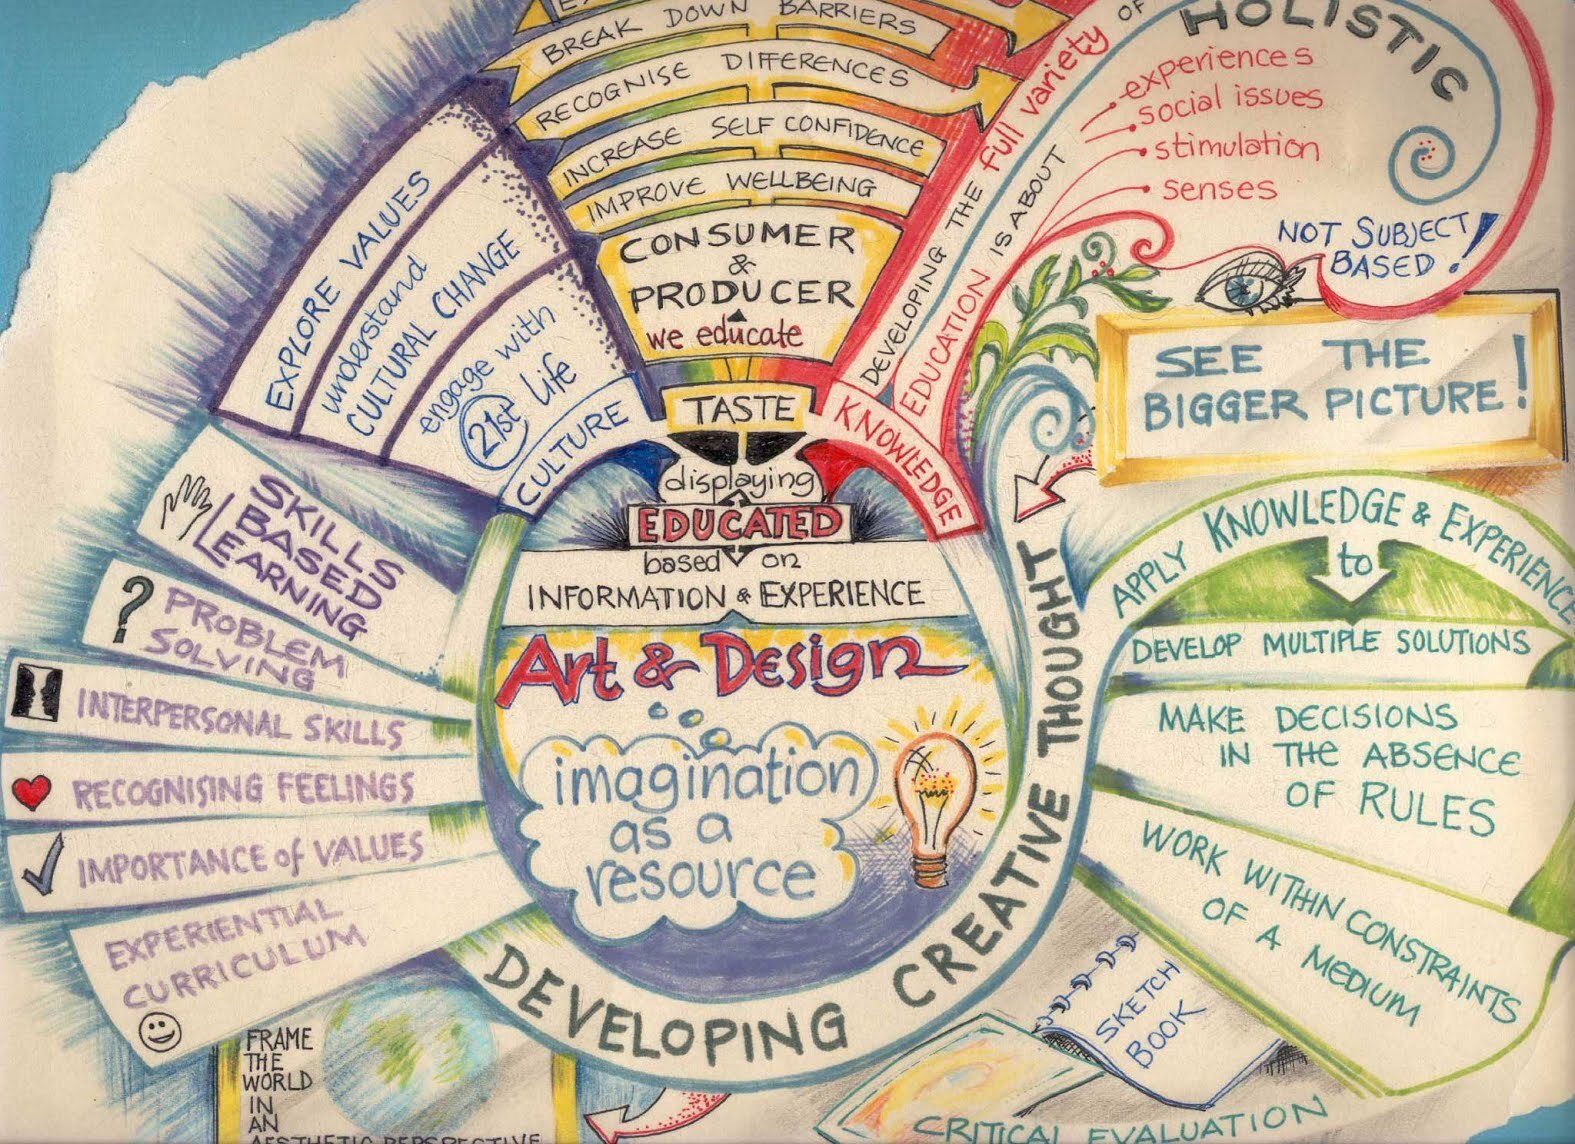 BREAK DOWN BARRIERS
RECOGNISE DIFFERENCES
INCREASE SELF CONFIDENCE
IMPROVE WELLBEING
CONSUMER
&
PRODUCER
we educate
TASTE
displaying
EDUCATED
based on
INFORMATION & EXPERIENCE
Art & Design
imagination
as a
resource
DEVELOPING CREATIVE THOUGHT
CULTURE
engage with
21st Life
understand
CULTURAL CHANGE
EXPLORE VALUES
SKILLS
BASED
LEARNING
?
PROBLEM
SOLVING
INTERPERSONAL SKILLS
RECOGNISING FEELINGS
IMPORTANCE of VALUES
EXPERIENTIAL
CURRICULUM
FRAME
THE
WORLD
IN
AN
AESTHETIC PERSPECTIVE
KNOWLEDGE
DEVELOPING THE full variety OF
EDUCATION IS ABOUT
HOLISTIC
experiences
social issues
stimulation
senses
NOT SUBJECT
BASED!
SEE THE
BIGGER PICTURE!
APPLY KNOWLEDGE & EXPERIENCE
to
DEVELOP MULTIPLE SOLUTIONS
MAKE DECISIONS
IN THE ABSENCE
OF RULES
WORK WITHIN CONSTRAINTS
OF A MEDIUM
SKETCH
BOOK
CRITICAL EVALUATION